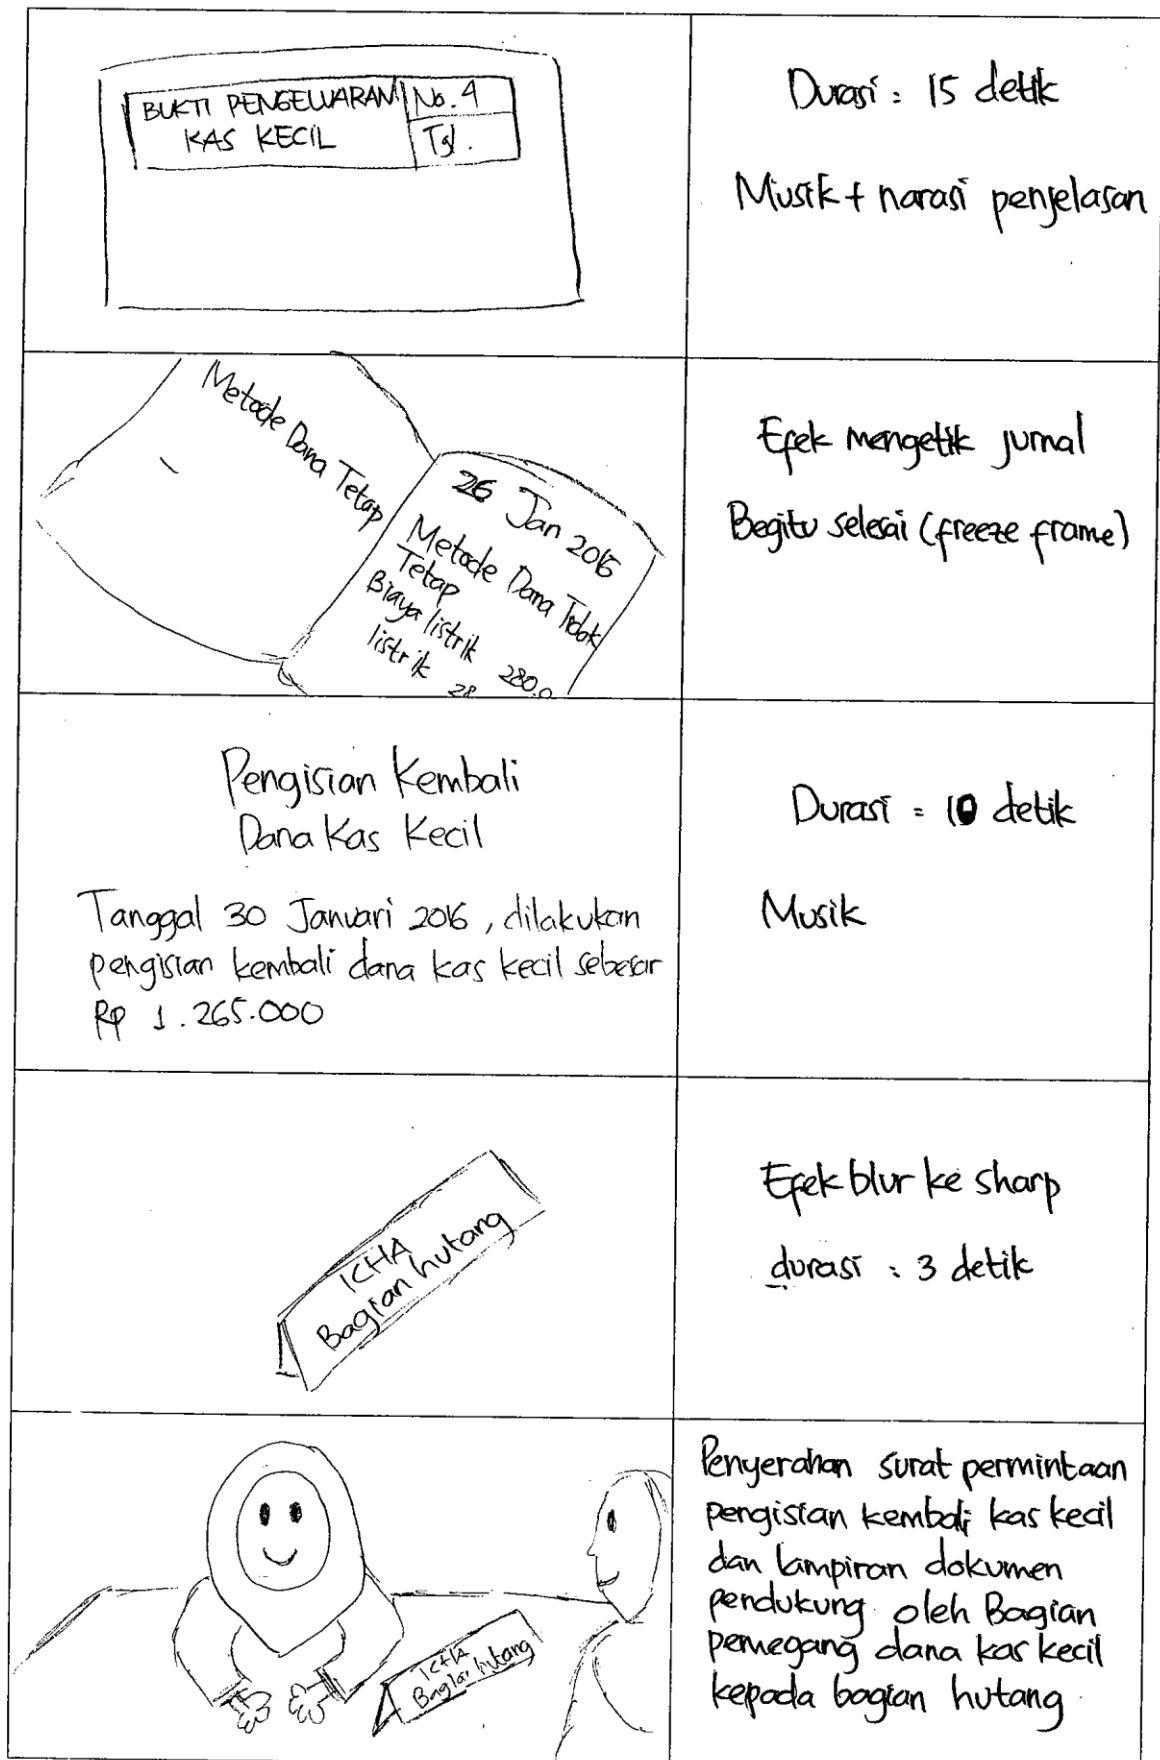 BUKTI PENGELUARAN
KAS KECIL
No. 4
Tgl.
Durasi : 15 detik
Musik + narasi penjelasan
Metode Dana Tetap
26 Jan 2016
Metode Dana Tidak
Tetap
Biaya listrik 280.0
listrik 28
Efek mengetik jurnal
Begitu selesai (freeze frame)
Pengisian Kembali
Dana Kas Kecil
Tanggal 30 Januari 2016, dilakukan
pengisian kembali dana kas kecil sebesar
Rp 1.265.000
Durasi = 10 detik
Musik
ICHA
Bagian hutang
Efek blur ke sharp
durasi : 3 detik
ICHA
Bagian hutang
Penyerahan surat permintaan
pengisian kembali kas kecil
dan lampiran dokumen
pendukung oleh Bagian
pemegang dana kas kecil
kepada bagian hutang